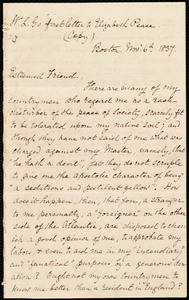 W. L. G's first letter to Elizabeth Pease
(Copy)
Boston Nov 6th 1837.
Esteemed Friend,
There are many of my
countrymen who regard me as a rash
disturber of the peace of society, scarcely fit
to be tolerated upon my native soil; and
though they have not said of me what was
charged against my Master, namely, "that
he hath a devil," yet they do not scruple
to give me the apostolic character of being
"a seditious and pestilent fellow". How
does it happen, then, that you, a stranger
to me personally, a "foreigner" on the other
side of the Atlantic, are disposed to cherish
a good opinion of me, to approve my
labors, & even to aid me in my "incendiary"
and "fanatical" purposes by a generous
donation? Ought not my own countrymen to
know me better than a resident in England?